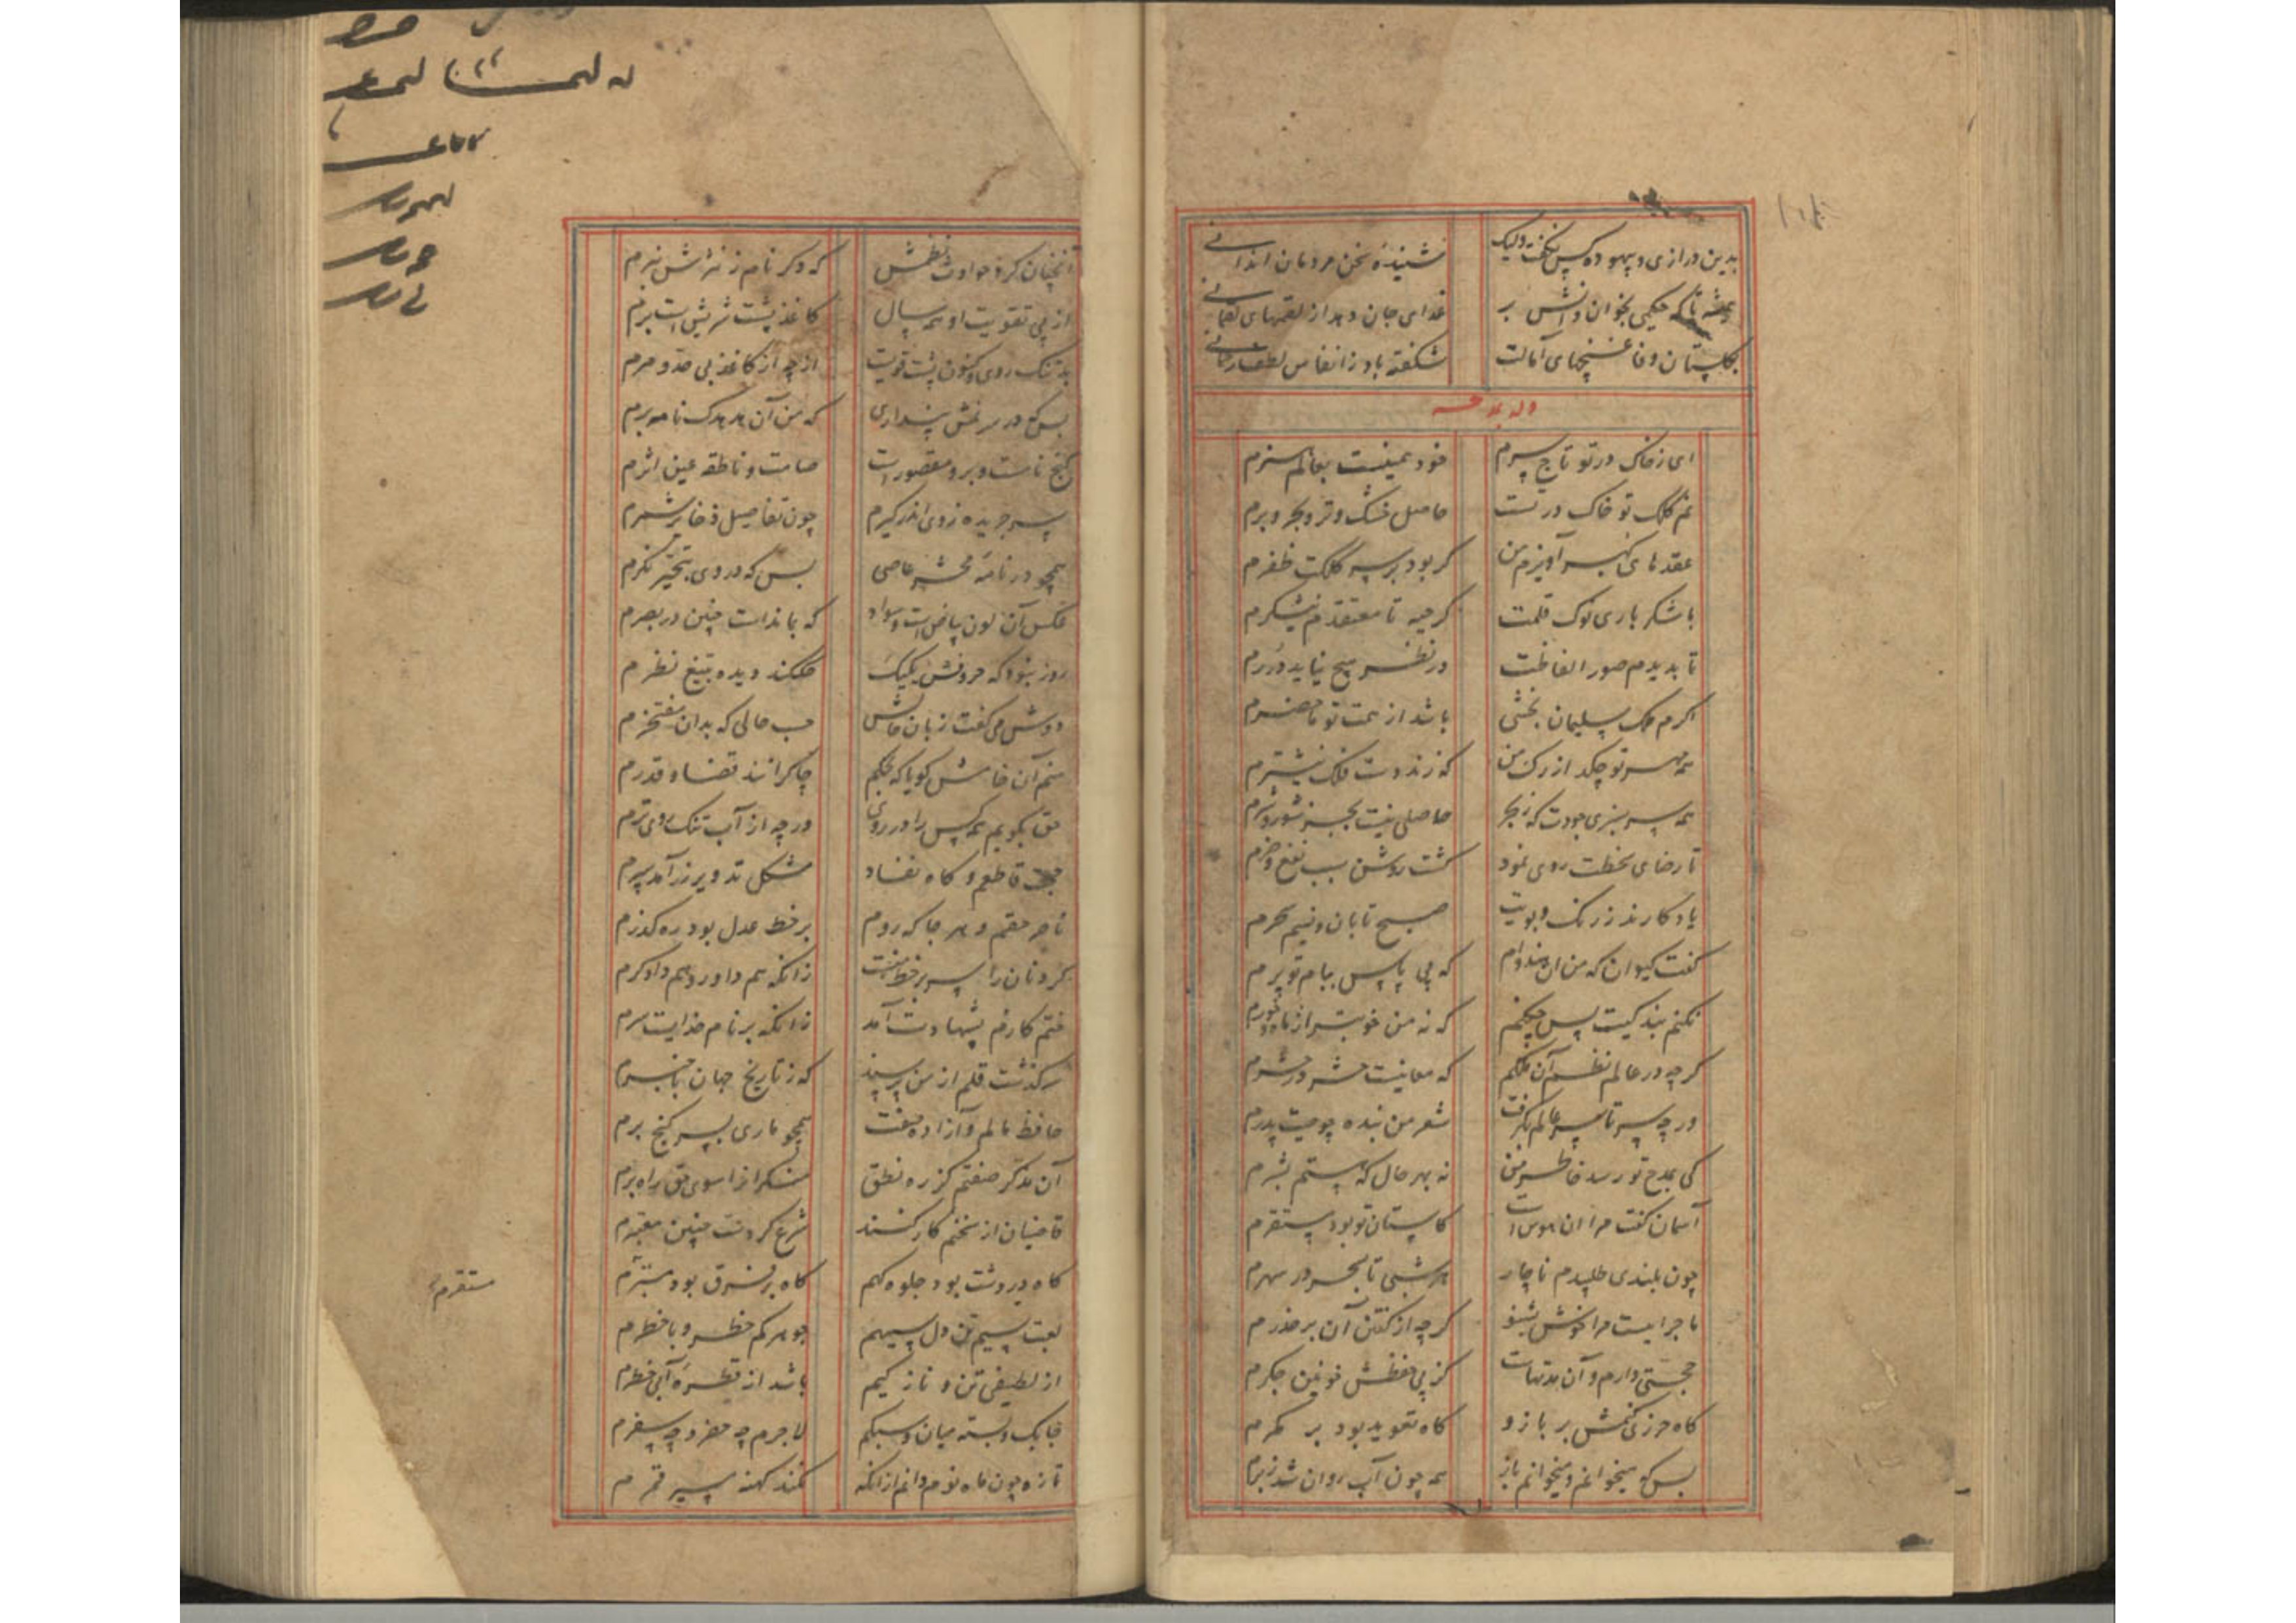 بدین درازی و بیهوده کس نگفت ولیک نشیند سخن مردمان
همیشه تا که حکیمی بخوان دانش بر غذای جان دهد از لقمهای لقمانی
بگلستان وفا غنچهای آمالت شکفته باد ز انفاس لطف رحمانی
وله
ای ز خاک در تو تاج سرم خود همینست بعالم سزم
نم کلک تو خاک در تست حاصل خشک و تر و بحر و برم
عقدهای کهر آویزم من کر بود بر سر کلکت ظفرم
با شکر باری نوک قلمت کرچه تا معتقد نیشکرم
تا بدیدم صور الفاظت در نظر هیچ نیاید دررم
اکرم ملک سلیمان بخشی باشد از همت تو ماحضرم
همه مهر تو چکد از رک من که زند دست فلک نیشترم
همه سرسبزی جودت که ز بحر حاصلی نیست بجز شور و شرم
تا رضای سخطت روی نمود کشت روشن سبب نفع و ضرم
یادکارند ز رنک و بویت صبح تابان و نسیم سحرم
کفت کیوان که من آن هندوام که پی پاس ببام تو برم
نکنم بندکیت پس چکنم که نه من خوبتر از ماه و خورم
کرچه در عالم نظم آن ملکم که معانیست حشر در حشرم
ور چه سر تا سر عالم بکرفت شعر من بنده چو صیت پدرم
کی بمدح تو رسد خاطر من نه بهر حال که هستم بشرم
آسمان کفت مرا آن هوس است کاستان تو بود مستقرم
چون بلندی طلبیدم ناچار هر شبی تا بسحر در سهرم
ماجراییست مرا خوش بشنو کرچه از کفتن آن بر حذرم
حجتی دارم و آن مدتهاست کز پی حفظش خونین جکرم
کاه حرزی کنمش بر بازو کاه تعویذ بود بر کمرم
بس که میخوانم و میخوانم باز همه چون آب روان شد ز برم
آنچنان کرد حوادث که دکر نام ز نشرش نبرم
از پی تقویت او همه سال کاغذ پشت
بد تنک روی و کنون پشت قویست ازچه از کاغذ بی حد و مرم
بس که در سرزنش پنداری که من آن هدهدک نامه برم
کنج نامست و برو مقصورست صامت و ناطقه عین اثرم
سر جریده ز وی اندر کیرم چون تفاصیل ذخایر شمرم
همچو در نامه محشر عاصی بس که در وی بتحیر نکرم
عکس آن لون بیاض است و سواد که بماندست چنین در بصرم
روز نبود که حروفش یکیک حک کند دیده بتیغ نظرم
دوش می کفت زبان حالش حسب حالی که بدان مفتخرم
منم آن خامش کویا که بحکم چاکرانند قضا و قدرم
حق بکویم همه کس را در روی ورچه از آب تنک روی ترم
حجت قاطعم و کاه نفاد مشکل تدویر زرآمد سپرم
ناصر حقم و هر جا که روم بر خط عدل بود ره کذرم
کردنان را سر بر خط منست زانکه هم داور و هم دادکرم
ختم کارم بشهادت آمد زانکه بر نام خدایست سرم
سرکذشت قلم از من پرسید که ز تاریخ جهان با خبرم
حافظ مالم و آزاده صفت همچو ماری بسر کنج برم
آن مذکر صفتم کز ره نطق منکرانرا سوی حق راه برم
قاضیان از سخنم کار کنند شرع کردست چنین معتبرم
کاه در دست بود جلوه کهم کاه بر فرق بود مستقرم
لعبت سیم تن دل سیهم جوهر کم خطر و با خطرم
از لطیفی تن و نازکیم باشد از قطره آبی خطرم
چابک و بسته میان و سبکم لاجرم چه حضر و چه سفرم
تازه چون ماه نوم دانم از انکه نکند کهنه سیر قمرم
مستقرم